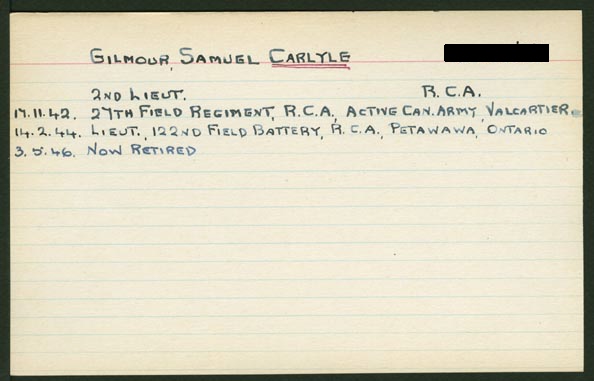 GILMOUR, SAMUEL CARLYLE
2ND LIEUT. R.C.A.
17.11.42. 27TH FIELD REGIMENT, R.C.A., ACTIVE CAN. ARMY, VALCARTIER
14.2.44. LIEUT., 122ND FIELD BATTERY, R.C.A., PETAWAWA, ONTARIO
3.5.46. NOW RETIRED